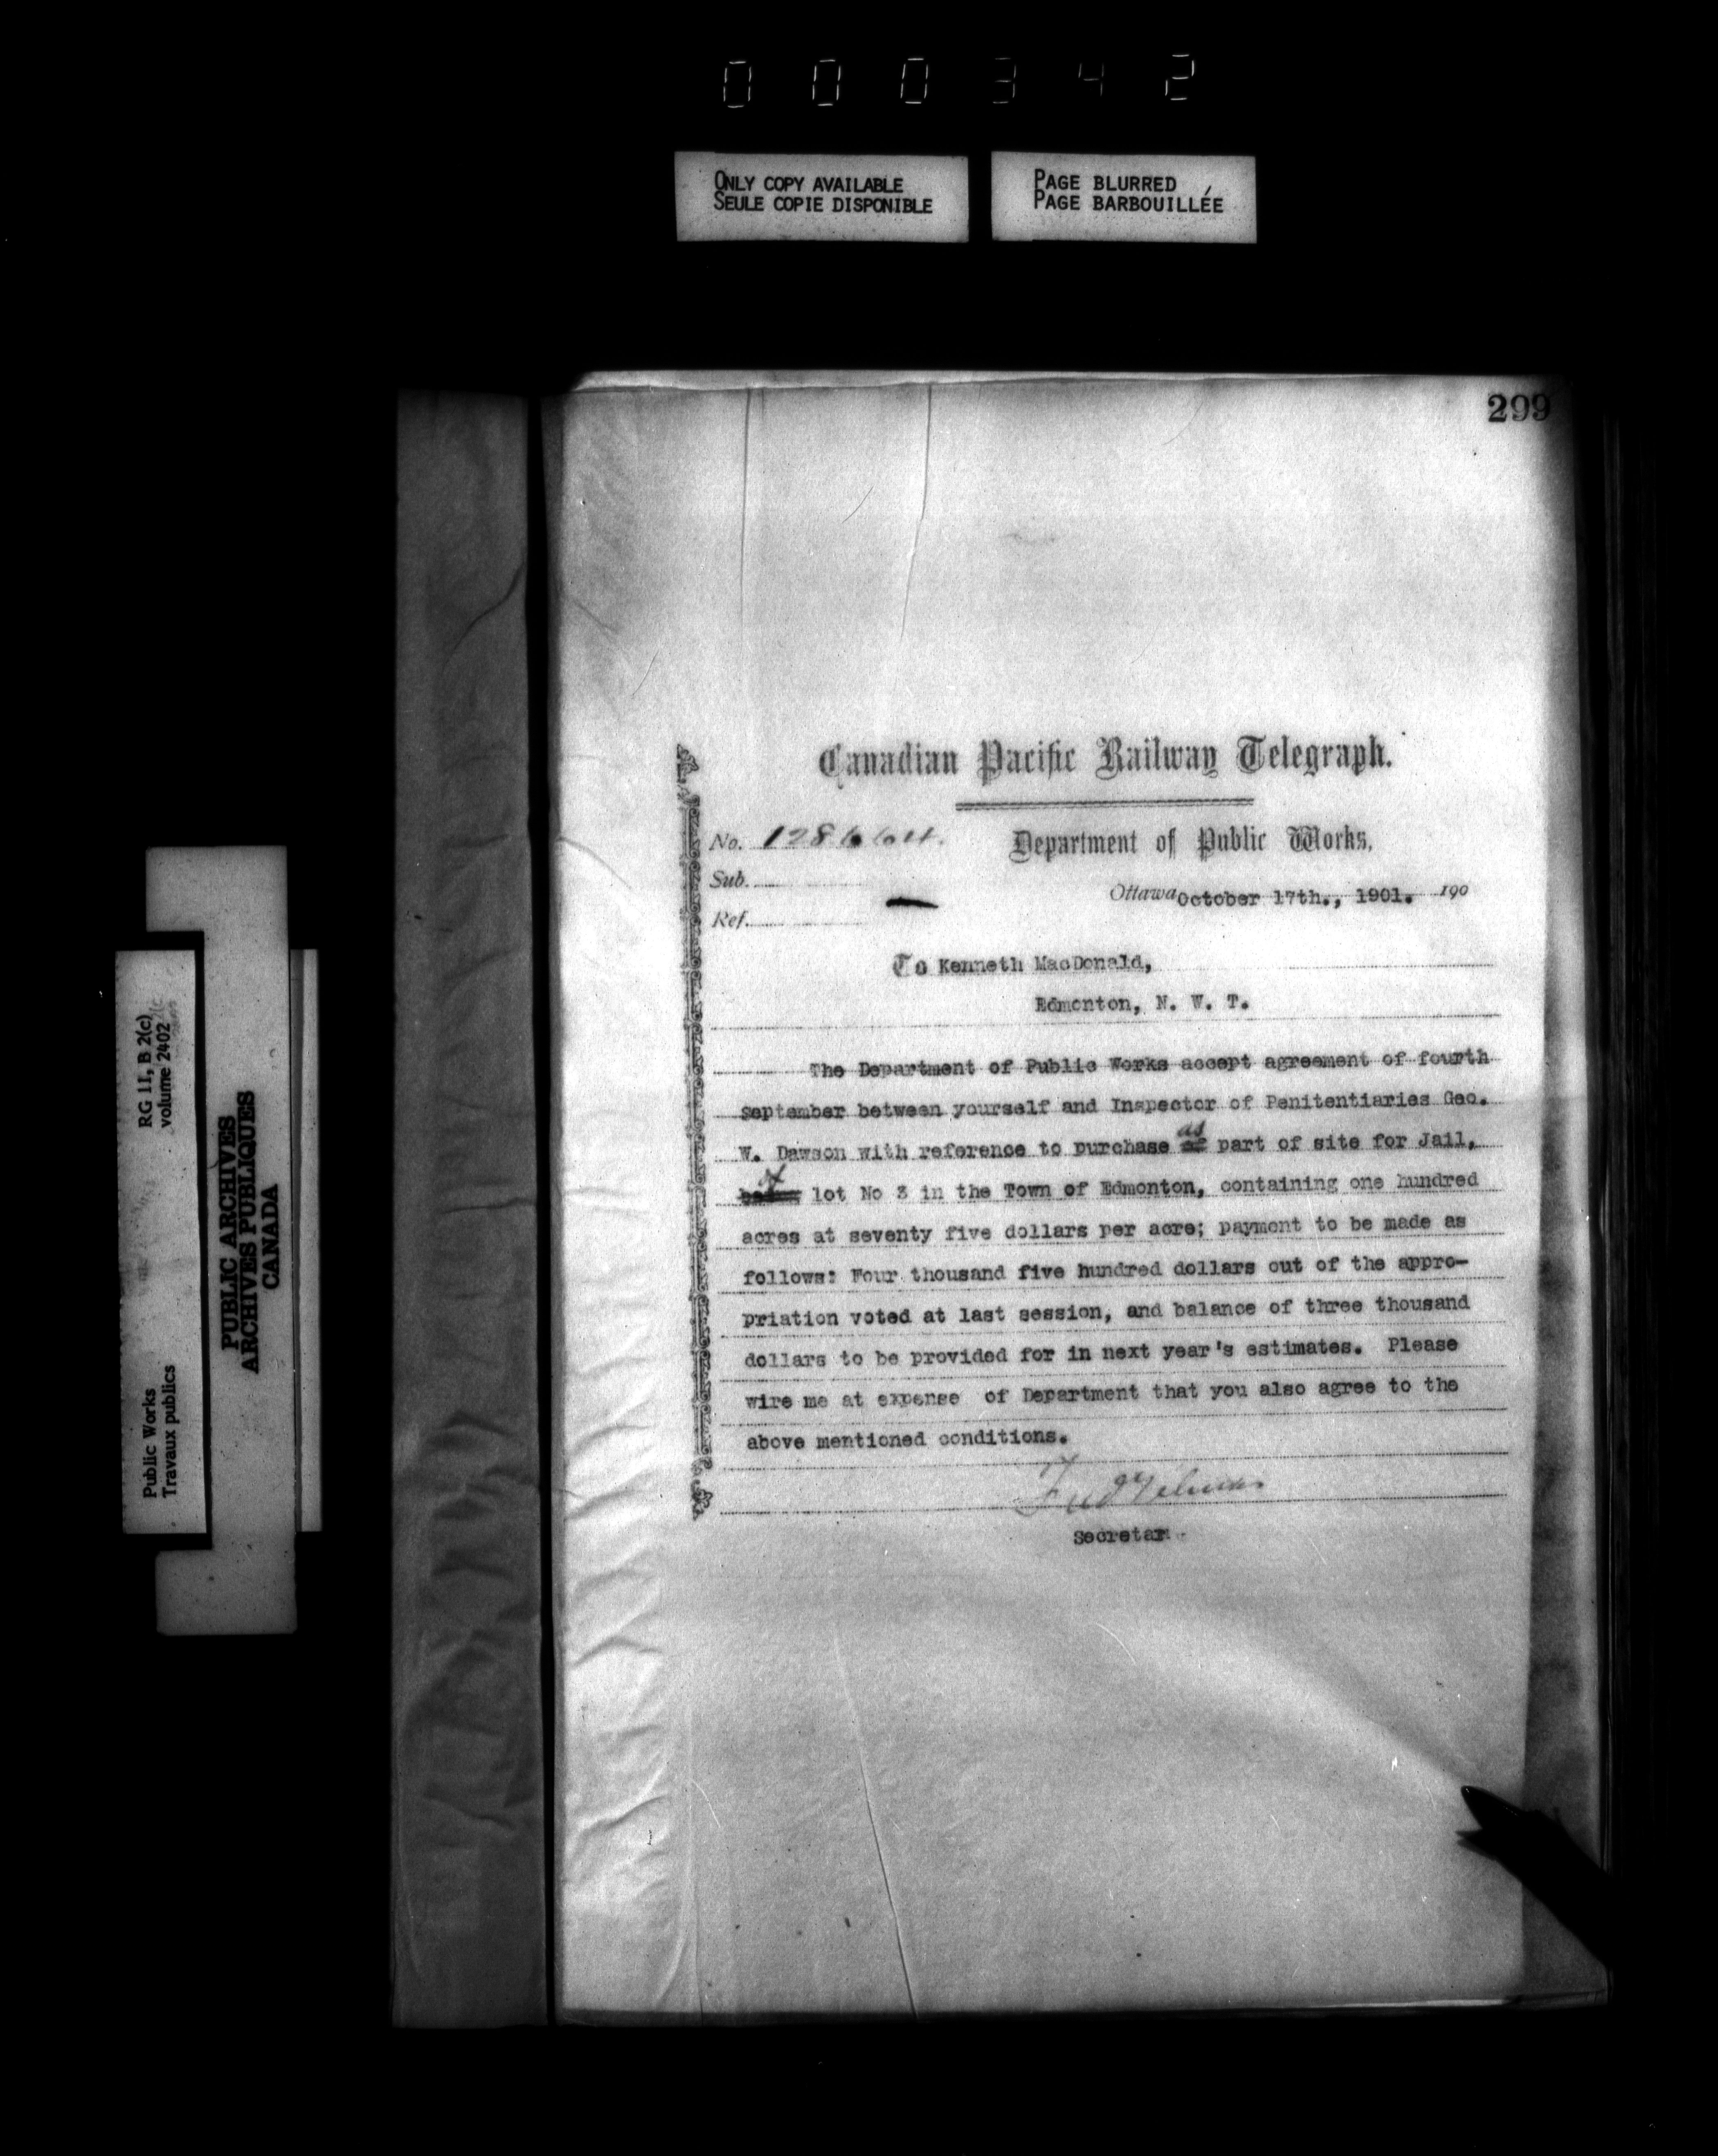 000342
ONLY COPY AVAILABLE
SEULE COPIE DISPONIBLE
PAGE BLURRED
PAGE BARBOUILLÉE
299
Canadian Pacific Railway Telegraph.
No. 128664.
Department of Public Works.
Sub.
Ottawa October 17th., 1901. 190
Ref.
To Kenneth MacDonald,
Edmonton, N. W. T.
The Department of Public Works accept agreement of fourth
September between yourself and Inspector of Penitentiaries Geo.
W. Dawson with reference to purchase as part of site for Jail,
of lot No 3 in the Town of Edmonton, containing one hundred
acres at seventy five dollars per acre; payment to be made as
follows: Four thousand five hundred dollars out of the appro-
priation voted at last session, and balance of three thousand
dollars to be provided for in next year's estimates. Please
wire me at expense of Department that you also agree to the
above mentioned conditions.
Secretar
RG 11, B 2(c)
volume 2402
Public Works
Travaux publics
PUBLIC ARCHIVES
ARCHIVES PUBLIQUES
CANADA